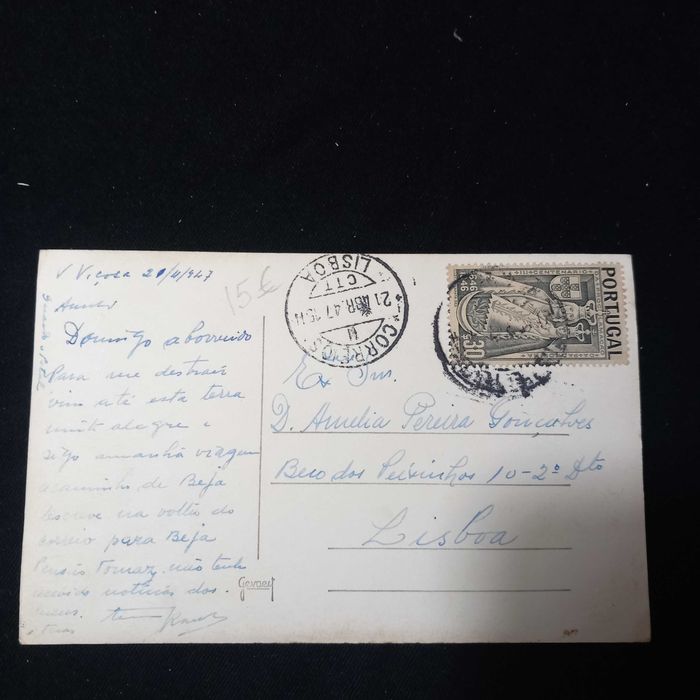 V Viçosa 20/4/947
15€
Domingo aborrecido
Para me destrair
vim até esta terra
muit alegre e
sigo amanhã viagem
a caminho de Beja
Escreve na volta do
correio para Beja
Pensão Tomaz, não tenho
recebido noticias dos
meus.
Gevaert
CORREIOS
21 ABR.47 15H
CTT
LISBOA
PORTUGAL
III CENTENÁRIO
1646
1946
$20
Ex Sma.
D. Amelia Pereira Gonçalves
Beco dos Peixinhos 10-2º Dto
Lisboa